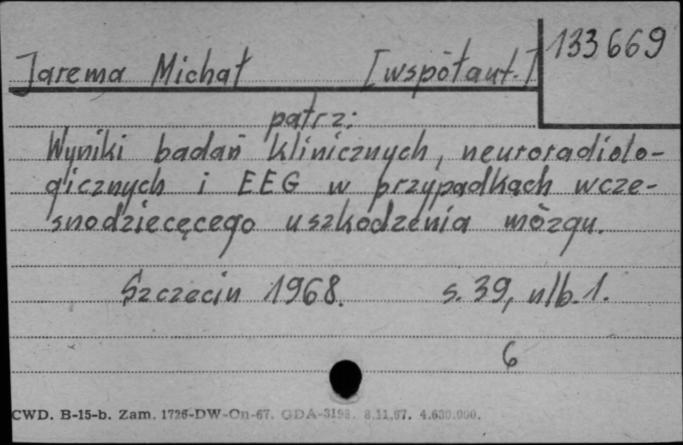 133669
Jarema Michał [współaut.]
patrz:
Wyniki badań klinicznych, neuroradiolo-
gicznych i EEG w przypadkach wcze-
snodziecęcego uszkodzenia mózgu.
Szczecin 1968. s. 39, nlb. 1.
6
CWD. B-15-b. Zam. 1726-DW-On-67. GDA-3198. 8.11.67. 4.630.000.